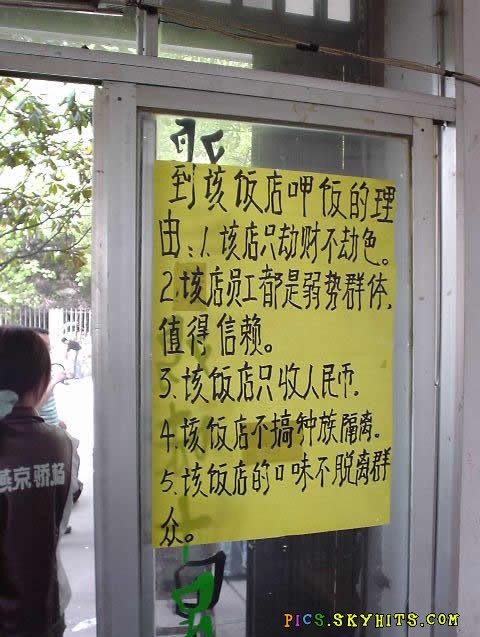 到该饭店呷饭的理
由:1.该店只劫财不劫色。
2.该店员工都是弱势群体,
值得信赖。
3.该饭店只收人民币.
4.该饭店不搞种族隔离。
5.该饭店的口味不脱离群
众。
燕京骄杨
PICS.SKYHITS.COM